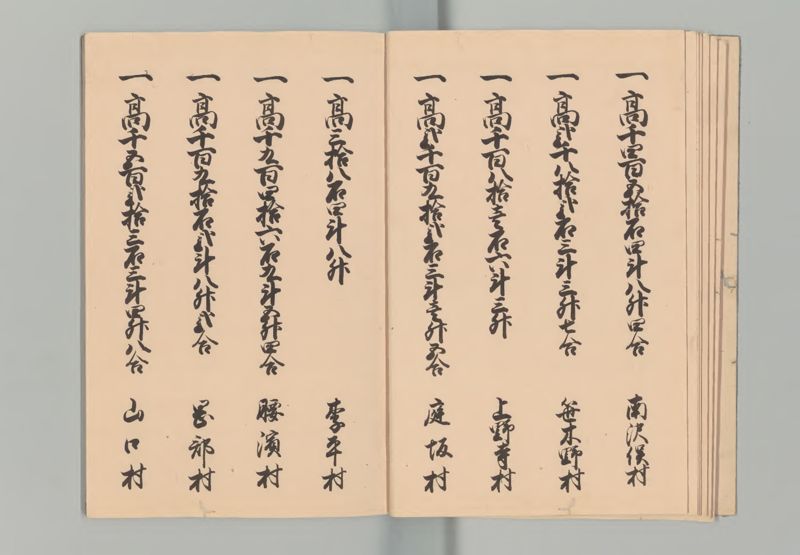 一高千四百五拾石四斗八升四合 南沢俣村
一高弐千八拾弐石三斗三升七合 笹木野村
一高千百八拾壱石六斗三升 上野寺村
一高弐千百九拾弐石三斗壱升五合 庭坂村
一高三拾八石四斗八升 李平村
一高千九百四拾六石九斗五升四合 腰濱村
一高千百九拾石弐斗八升弐合 岡部村
一高千五百弐拾三石三斗四升八合 山口村